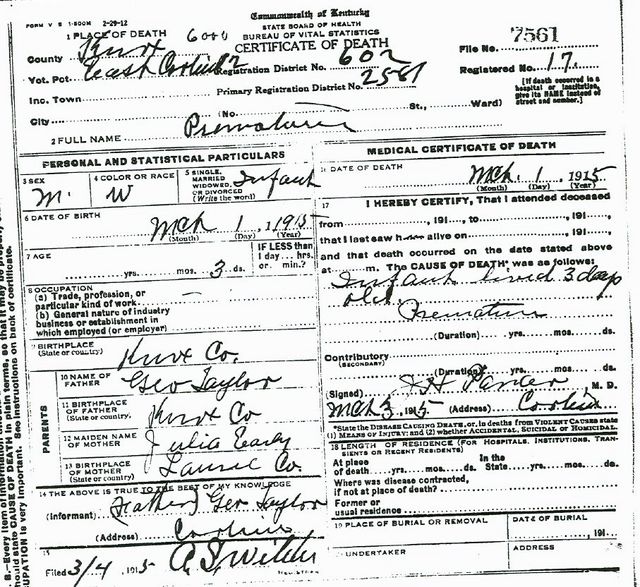 Commonwealth of Kentucky
FORM V S 1-500M 2-29-12
STATE BOARD OF HEALTH
BUREAU OF VITAL STATISTICS
CERTIFICATE OF DEATH
1 PLACE OF DEATH 6000
County Knox
Vot. Pct East Corbin 2 Registration District No. 602
File No. 7561
Registered No. 17.
Inc. Town
Primary Registration District No. 2581
[If death occurred in a
hospital or institution,
give its NAME instead of
street and number.]
City (No. St., Ward)
2 FULL NAME Premature
PERSONAL AND STATISTICAL PARTICULARS
3 SEX M.
4 COLOR OR RACE W
5 SINGLE, MARRIED WIDOWED, OR DIVORCED (Write the word) Infant
6 DATE OF BIRTH Mch 1, 1915
(Month) (Day) (Year)
7 AGE
yrs. mos. 3 ds.
IF LESS than
1 day hrs.
or min.?
8 OCCUPATION
(a) Trade, profession, or
particular kind of work
(b) General nature of industry
business or establishment in
which employed (or employer)
9 BIRTHPLACE
(State or country) Knox Co.
PARENTS
10 NAME OF
FATHER Geo Taylor
11 BIRTHPLACE
OF FATHER
(State or country) Knox Co
12 MAIDEN NAME
OF MOTHER Julia Early
13 BIRTHPLACE
OF MOTHER
(State or country) Laurel Co.
14 THE ABOVE IS TRUE TO THE BEST OF MY KNOWLEDGE
(Informant) (Father) Geo Taylor
(Address) Corbin
15
Filed 3/4 1915
REGISTRAR
MEDICAL CERTIFICATE OF DEATH
DATE OF DEATH Mch. 1, 1915
(Month) (Day) (Year)
17 I HEREBY CERTIFY, That I attended deceased
from , 191 , to , 191 ,
that I last saw h alive on , 191 ,
and that death occurred on the date stated above
at m. The CAUSE OF DEATH* was as follows:
Infant lived 3 days
old.
Premature
(Duration) yrs. mos. ds.
Contributory
(SECONDARY)
(Duration) yrs. mos. ds.
(Signed) M. D.
Mch 3, 1915 (Address) Corbin
*State the DISEASE CAUSING DEATH, or, in deaths from VIOLENT CAUSES state
(1) MEANS OF INJURY; and (2) whether ACCIDENTAL, SUICIDAL or HOMICIDAL.
18 LENGTH OF RESIDENCE (FOR HOSPITALS, INSTITUTIONS, TRANSIENTS OR RECENT RESIDENTS)
At place In the
of death yrs. mos. ds. State yrs. mos. ds.
Where was disease contracted,
if not at place of death?
Former or
usual residence
19 PLACE OF BURIAL OR REMOVAL
DATE OF BURIAL
, 191
UNDERTAKER
ADDRESS
B.—Every item of information
should state CAUSE OF DEATH in plain terms, so that it may be properly
OCCUPATION is very important. See instructions on back of certificate.